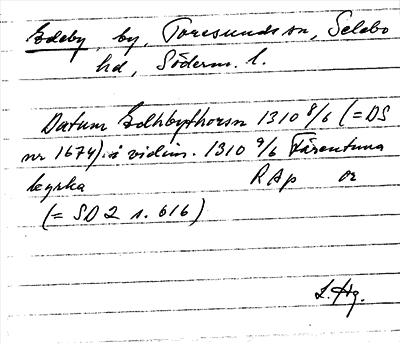 Edeby, by, Toresunds sn, Selebo
hd, Söderm. l.
Datum Edhbythorsn 1310 8/6 (= DS
nr 1674) i vidim. 1310 9/6 Färentuna
kyrka RAp or
(= SD 2 s. 616)
L. Hg.